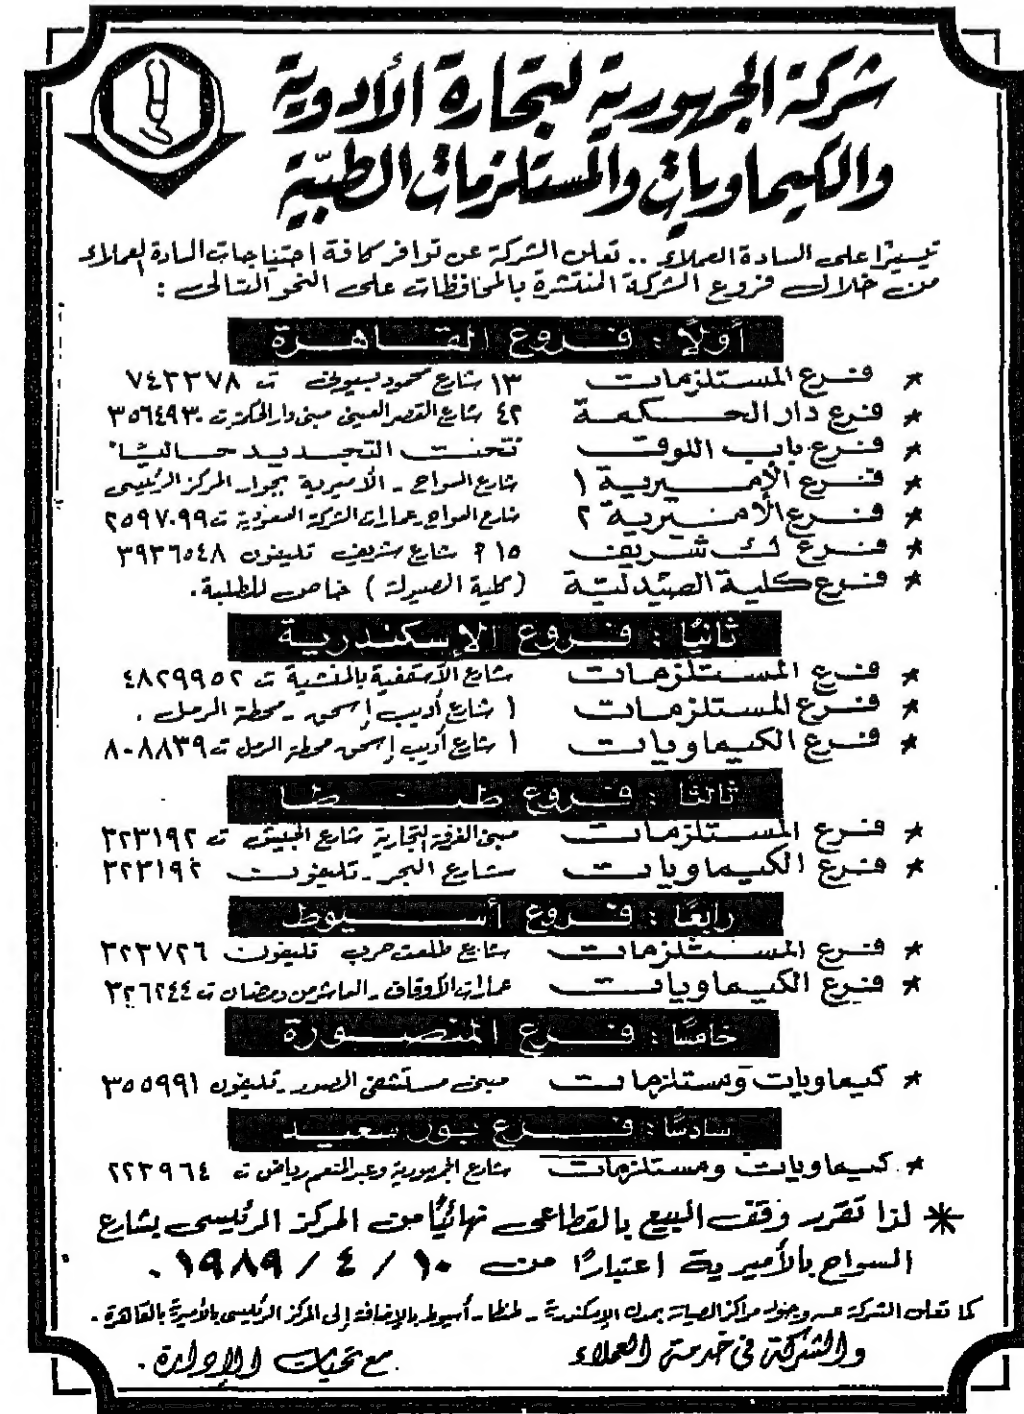 شركة الجمهورية لتجارة الأدوية
والكيماويات والمستلزمات الطبية
تيسيرًا على السادة العملاء .. تعلن الشركة عن توافر كافة احتياجات السادة العملاء
من خلال فروع الشركة المنتشرة بالمحافظات على النحو التالى :
أولًا : فروع القاهرة
* فرع المستلزمات ١٣ شارع محمود بسيونى ت ٧٤٣٣٧٨
* فرع دار الحكمة ٤٢ شارع القصر العينى مبنى دار الحكمة ت ٣٥٦٤٩٣٠
* فرع باب اللوق "تحت التجديد حاليًا"
* فرع الأميرية ١ شارع السواح - الأميرية بجوار المركز الرئيسى
* فرع الأميرية ٢ شارع السواح - عمارات الشركة السعودية ت ٢٥٩٧٠٩٩
* فرع ك شريف ١٥ م شارع شريف تليفون ٣٩٣٦٥٤٨
* فرع كلية الصيدلية (كلية الصيدلة) خاص للطلبة .
ثانيًا : فروع الإسكندرية
* فرع المستلزمات شارع الأسقفية بالمنشية ت ٤٨٢٩٩٥٢
* فرع المستلزمات ١ شارع أديب إسحق - محطة الرمل .
* فرع الكيماويات ١ شارع أديب إسحق محطة الرمل ت ٨٠٨٨٣٩
ثالثًا : فروع طنطا
* فرع المستلزمات مبنى الغرفة التجارية شارع الجيش ت ٣٢٣١٩٢
* فرع الكيماويات شارع البحر - تليفون ٣٢٣١٩٢
رابعًا : فروع أسيوط
* فرع المستلزمات شارع طلعت حرب تليفون ٣٢٣٧٢٦
* فرع الكيماويات عمارات الأوقاف - العاشر من رمضان ت ٣٢٦٢٤٤
خامسًا : فرع المنصورة
* كيماويات ومستلزمات مبنى مستشفى الصدر - تليفون ٣٥٥٩٩١
سادسًا : فرع بورسعيد
* كيماويات ومستلزمات شارع الجمهورية وعبد المنعم رياض ت ٢٢٣٩٦٤
* لذا تقرر وقف البيع بالقطاعى نهائيًا من المركز الرئيسى بشارع
السواح بالأميرية اعتبارًا من ١٠ / ٤ / ١٩٨٩ .
كما تعلن الشركة عن وجود مراكز الصيانة بمدن الإسكندرية - طنطا - أسيوط بالإضافة إلى المركز الرئيسى بالأميرية بالقاهرة .
والشركة فى خدمة العملاء مع تحيات الإدارة .